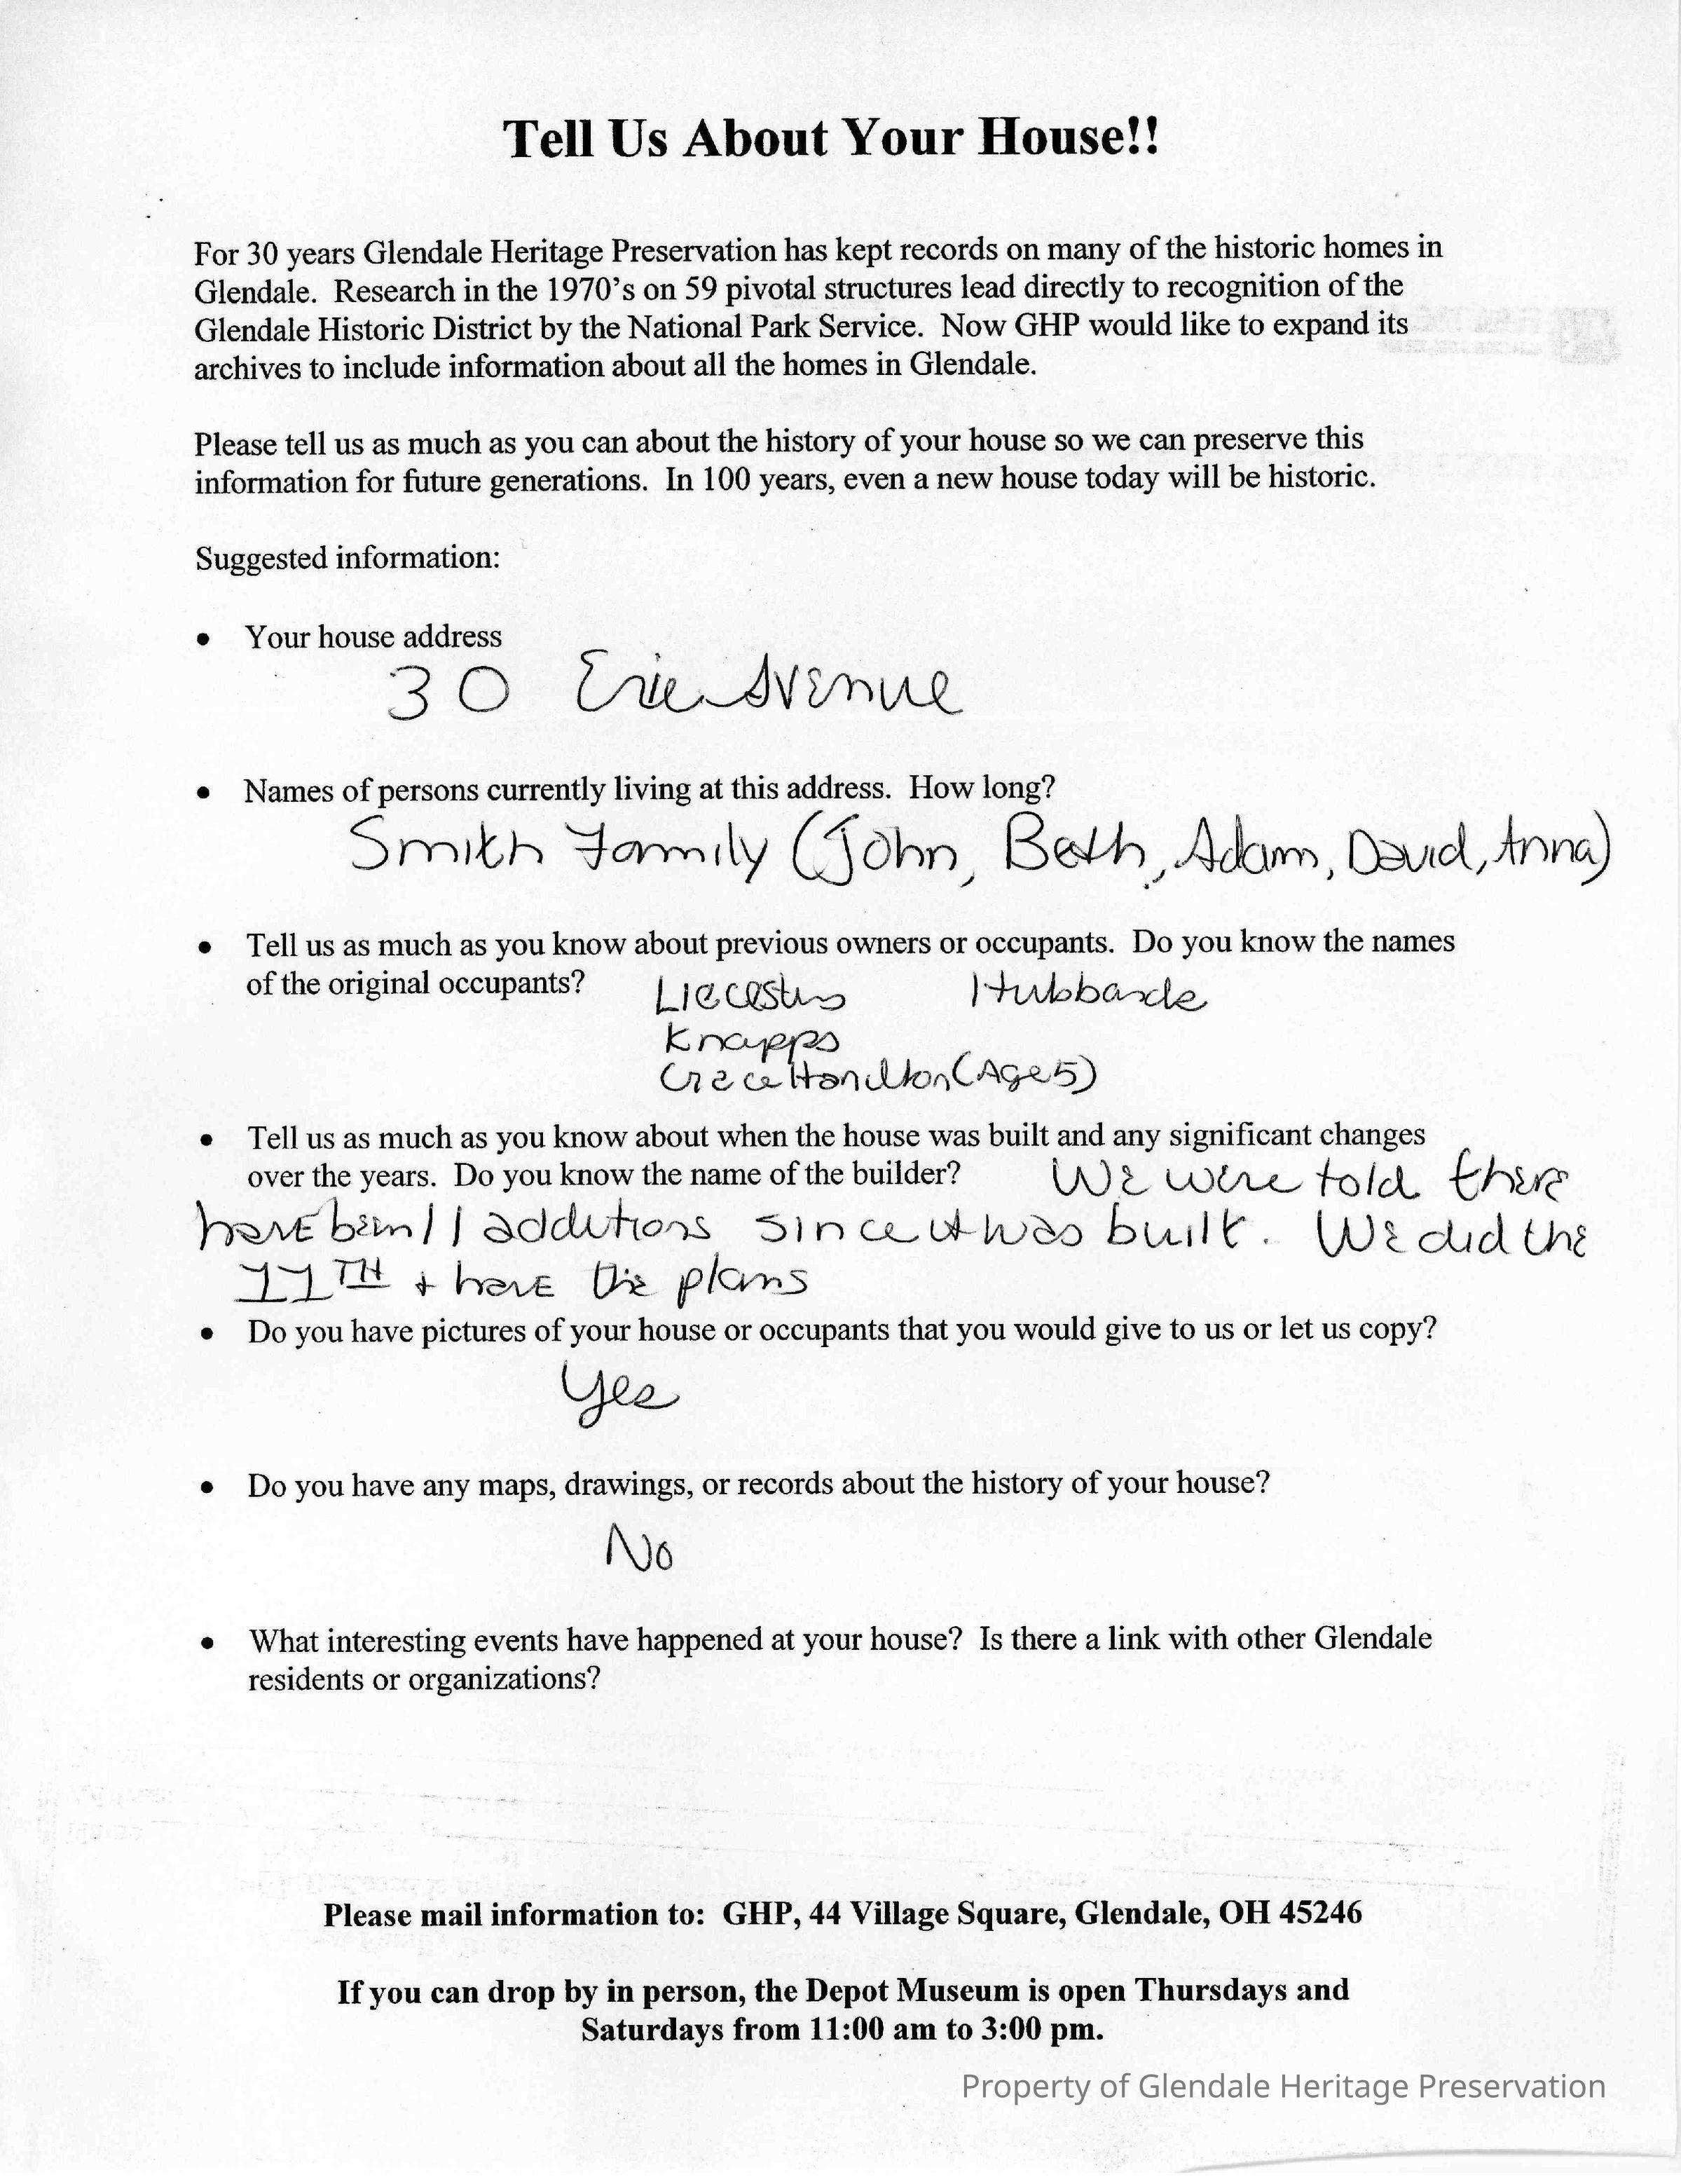 Tell Us About Your House!!
For 30 years Glendale Heritage Preservation has kept records on many of the historic homes in
Glendale. Research in the 1970's on 59 pivotal structures lead directly to recognition of the
Glendale Historic District by the National Park Service. Now GHP would like to expand its
archives to include information about all the homes in Glendale.
Please tell us as much as you can about the history of your house so we can preserve this
information for future generations. In 100 years, even a new house today will be historic.
Suggested information:
• Your house address
30 Erie Avenue
• Names of persons currently living at this address. How long?
Smith Family (John, Beth, Adam, David, Anna)
• Tell us as much as you know about previous owners or occupants. Do you know the names
of the original occupants?
Knapps
Hamilton (Age 5)
• Tell us as much as you know about when the house was built and any significant changes
over the years. Do you know the name of the builder? We were told there
have been 11 additions since it was built. We did the
11TH + have the plans
• Do you have pictures of your house or occupants that you would give to us or let us copy?
Yes
• Do you have any maps, drawings, or records about the history of your house?
No
• What interesting events have happened at your house? Is there a link with other Glendale
residents or organizations?
Please mail information to: GHP, 44 Village Square, Glendale, OH 45246
If you can drop by in person, the Depot Museum is open Thursdays and
Saturdays from 11:00 am to 3:00 pm.
Property of Glendale Heritage Preservation